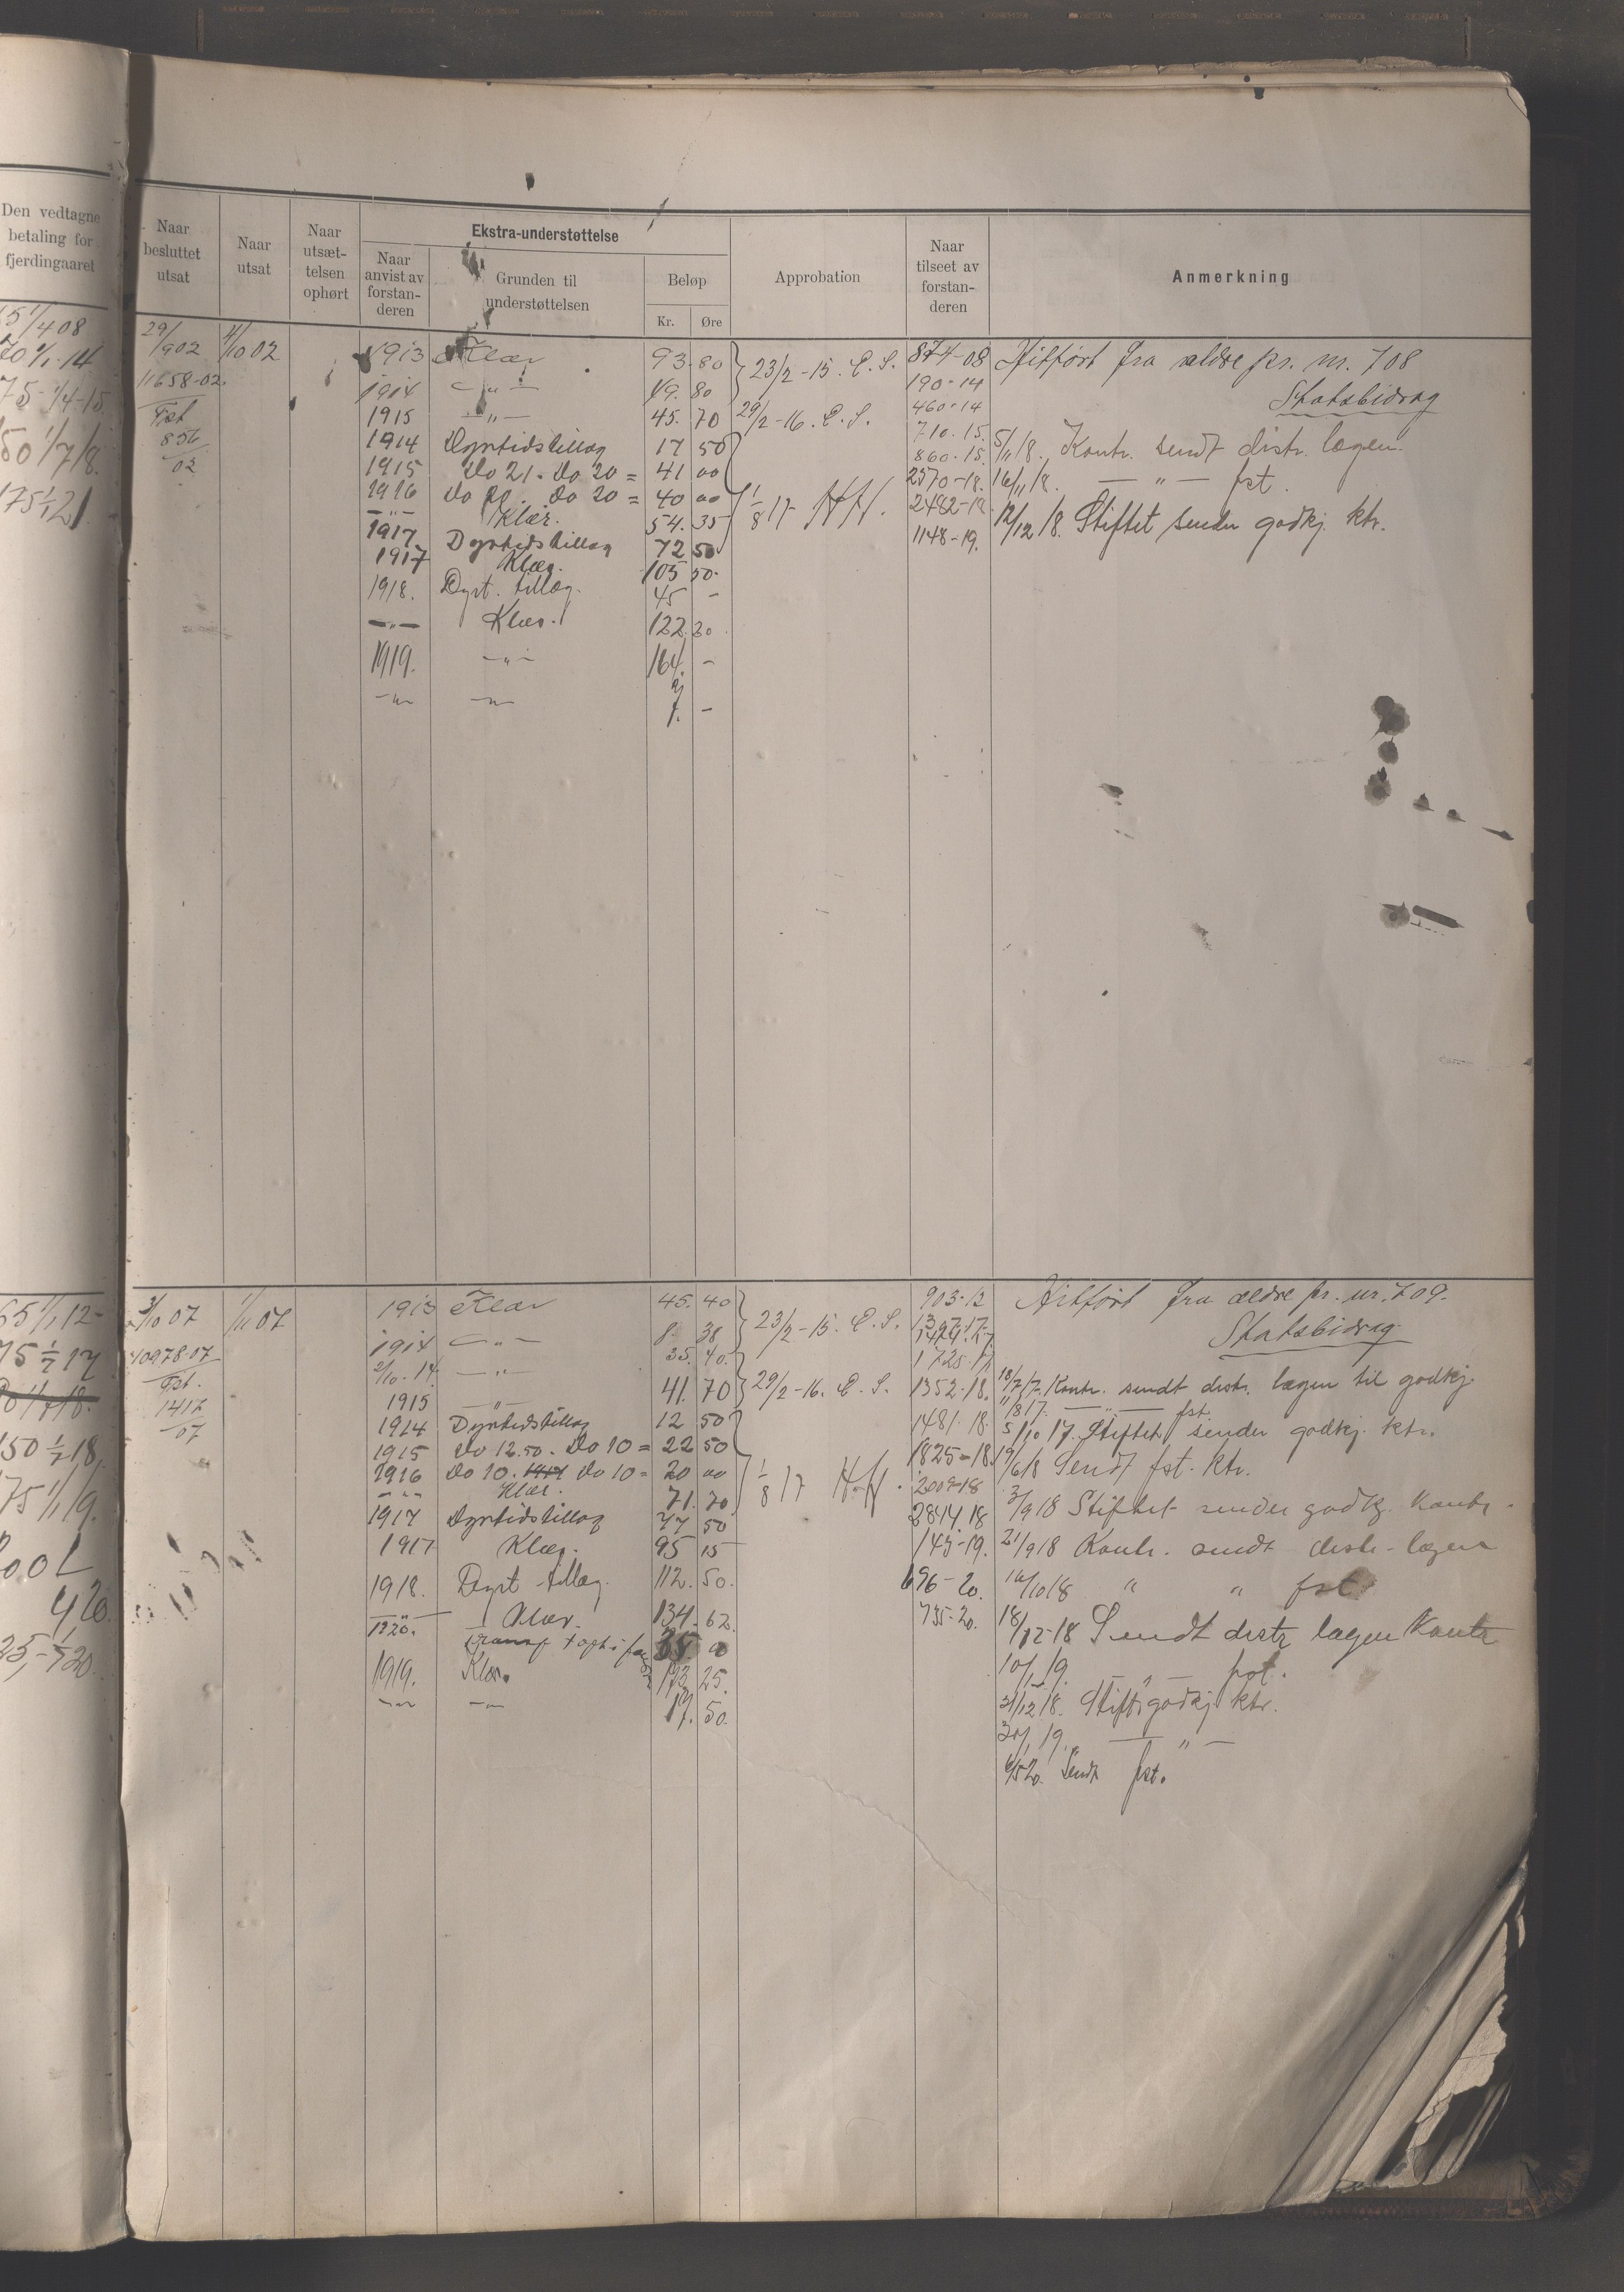 Den vedtagne
betaling for
fjerdingaaret
Naar
besluttet
utsat
Naar
utsat
Naar
utsæt-
telsen
ophørt
Ekstra-understøttelse
Naar
anvist av
forstan-
deren
Grunden til
understøttelsen
Beløp
Kr. Øre
Approbation
Naar
tilseet av
forstan-
deren
Anmerkning
65 1/4 08
70 1/1-14
75-1/4-15
150 1/7/8.
175 1/1 21
29/902 1/10 02
11658-02.
Fst
856
02
1913 Klær 93.80 23/2-15. C.S.
1914 —„— 19.80
1915 —„— 45.70 29/2-16. C.S.
1914 Dyrtidstillæg 17 50
1915 Do 21. Do 20 = 41 00
1916 Do 20. Do 20 = 40 00
—„— Klær. 54.35 1/8 17 HH.
1917 Dyrtidstillæg 72 50
1917 Klær. 105 50.
1918. Dyrt. tillæg. 45 -
—„— Klær. 122.20
1919. —„— 164. -
—„— —„— 7. -
874-08
190-14
460-14
710.15.
860.15.
2570-18.
2482-18
1148-19.
Hitført fra ældre pr. nr. 708
Statsbidrag
5/11 18. Kontr. sendt distr. lægen.
16/11 18. —„— fst.
12/12 18. Stiftet sender godkj. ktr.
65 1/1 12-
75 1/7 17
150 1/7 18,
175 1/1 19.
3/10 07 1/11 07
10978-07
Fst.
1417
07
1913 Klær 45.40 23/2-15. C.S.
1914 —„— 8. 38
2/10.14 —„— 35.40.
1915 —„— 41.70 29/2-16. C.S.
1914 Dyrtidstillæg 12 50
1915 Do 12.50. Do 10 = 22 50
1916 Do 10. 1917 Do 10 = 20 00
—„— Klær. 71.70 1/8 17 H.H.
1917 Dyrtidstillæg 77 50
1917 Klær. 95 15
1918. Dyrt tillæg. 112. 50.
—„— Klær. 134. 62
1920.
1919. Klær. 173. 25.
—„— —„— 17. 50.
903-12
1397-17-
1725.17
1352-18.
1481.18.
1825-18.
2009-18
2814.18
143-19.
696-20.
735-20.
Hitført fra ældre pr. nr. 709.
Statsbidrag
18/7 17. Kontr. sendt distr. lægen til godkj.
—„— fst.
5/10 17. Stiftet sender godkj. ktr.
19/6 18 Sendt fst. ktr.
3/9 18 Stiftet sender godkj. Kontr.
21/9 18 Kontr. sendt distr.-lægen
16/10 18 „ „ fst.
18/12-18 Sendt distr lægen Kontr
10/1 19. —„— fst.
31/12 18. Stift. godkj. ktr.
30/1 19. —„—
6/5 20. Sendt fst.